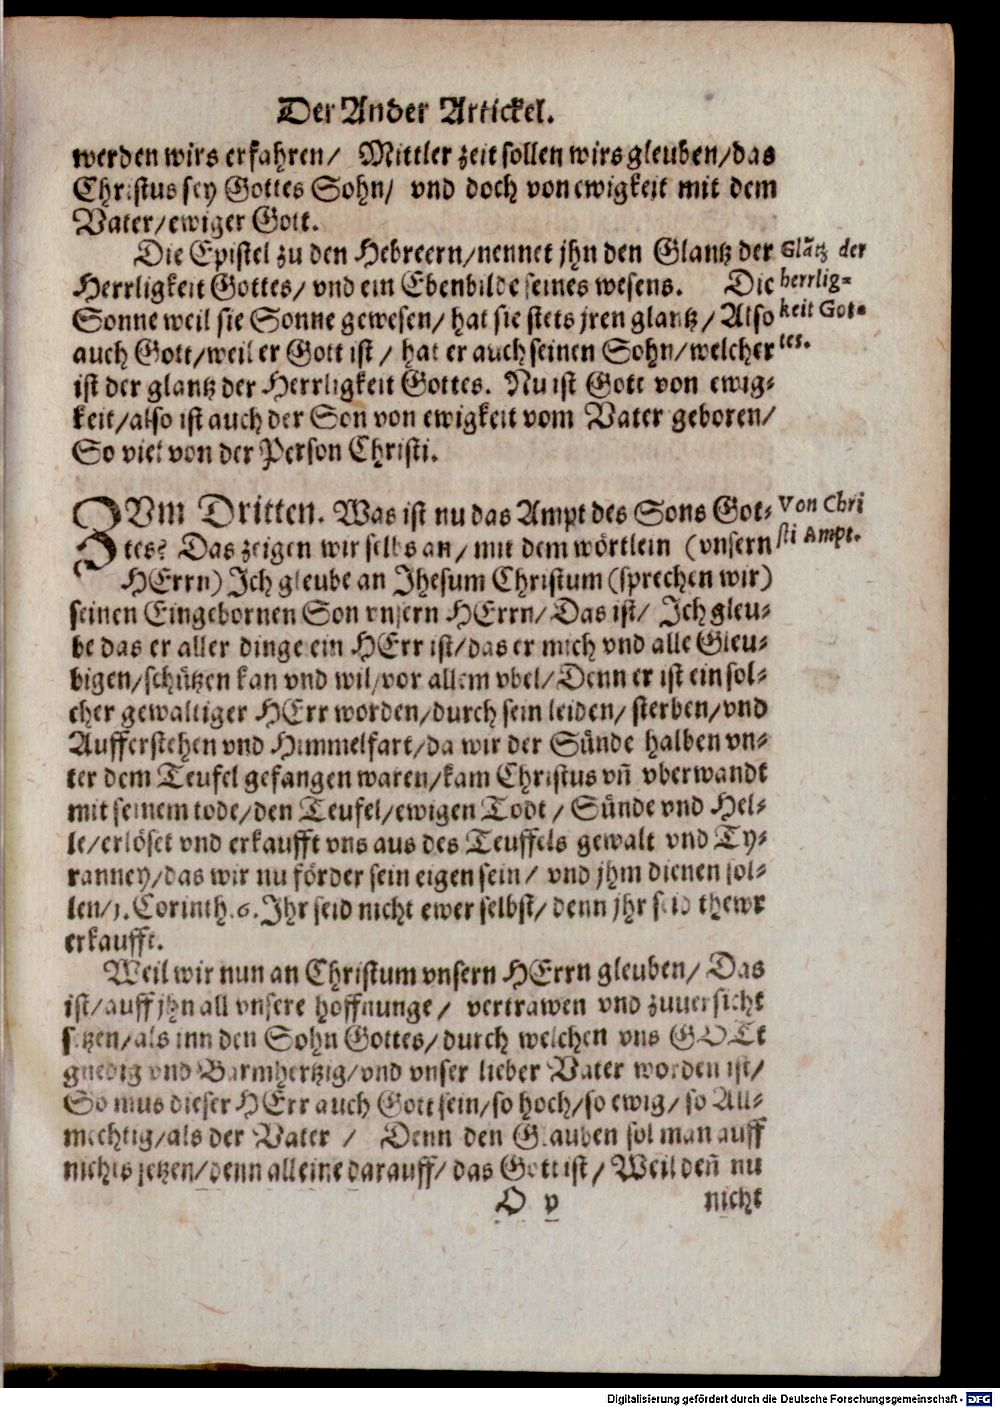 Der Ander Artickel.
werden wirs erfahren/ Mittler zeit sollen wirs gleuben/das
Christus sey Gottes Sohn/ vnd doch von ewigkeit mit dem
Vater/ewiger Gott.
Die Epistel zu den Hebreern/nennet jhn den Glantz der
Herrligkeit Gottes/ vnd ein Ebenbilde seines wesens. Die
Sonne weil sie Sonne gewesen/ hat sie stets jren glantz/ Also
auch Gott/weil er Gott ist/ hat er auch seinen Sohn/welcher
ist der glantz der Herrligkeit Gottes. Nu ist Gott von ewig-
keit/also ist auch der Son von ewigkeit vom Vater geboren/
So viel von der Person Christi.
Glãtz der
herrlig-
keit Got-
tes.
ZVm Dritten. Was ist nu das Ampt des Sons Got-
tes? Das zeigen wir selbs an/ mit dem wörtlein (vnsern
HErrn) Ich gleube an Jhesum Christum (sprechen wir)
seinen Eingebornen Son vnsern HErrn/ Das ist/ Ich gleu-
be das er aller dinge ein HErr ist/das er mich vnd alle Gleu-
bigen/schützen kan vnd wil/vor allem vbel/Denn er ist ein sol-
cher gewaltiger HErr worden/durch sein leiden/ sterben/vnd
Aufferstehen vnd Himmelfart/da wir der Sünde halben vn-
ter dem Teufel gefangen waren/kam Christus vñ vberwandt
mit seinem tode/den Teufel/ewigen Todt/ Sünde vnd Hel-
le/erlöset vnd erkaufft vns aus des Teuffels gewalt vnd Ty-
ranney/das wir nu förder sein eigen sein/ vnd jhm dienen sol-
len/1. Corinth. 6. Ihr seid nicht ewer selbst/ denn jhr seid thewr
erkaufft.
Von Chri
sti Ampt.
Weil wir nun an Christum vnsern HErrn gleuben/ Das
ist/auff jhn all vnsere hoffnunge/ vertrawen vnd zuuersicht
setzen/als inn den Sohn Gottes/durch welchen vns GOTt
gnedig vnd Barmhertzig/vnd vnser lieber Vater worden ist/
So mus dieser HErr auch Gott sein/so hoch/so ewig/ so All-
mechtig/als der Vater/ Denn den Glauben sol man auff
nichts setzen/denn alleine darauff/ das Gott ist/ Weil deñ nu
O v
nicht
Digitalisierung gefördert durch die Deutsche Forschungsgemeinschaft - DFG